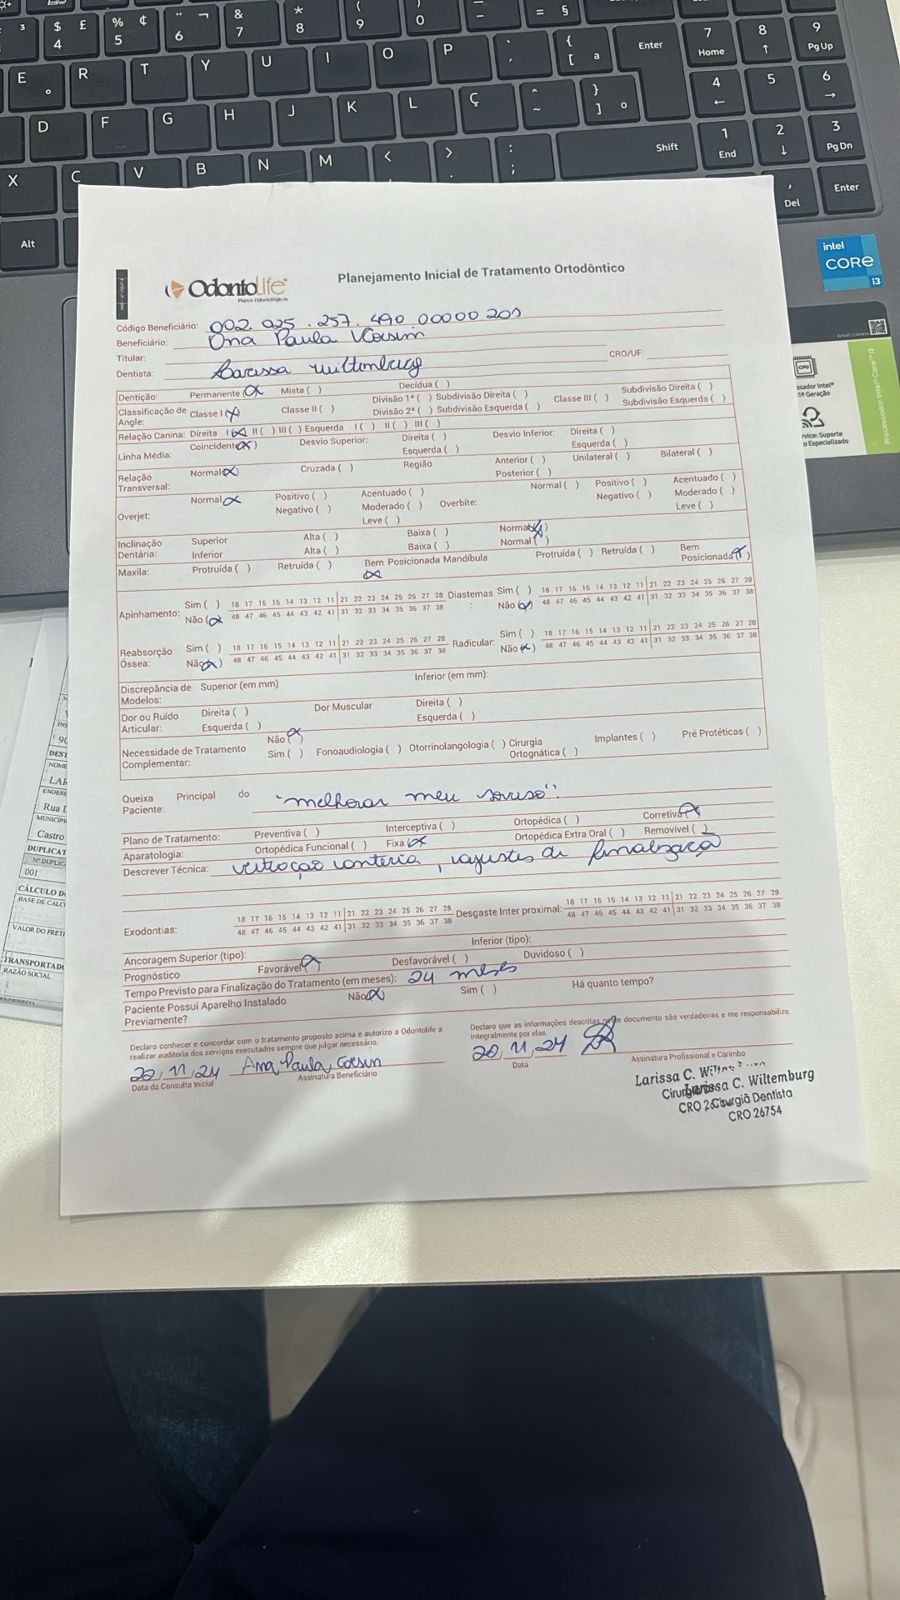 OdontoLife
Planos Odontológicos
Planejamento Inicial de Tratamento Ortodôntico
Código Beneficiário: 002.025.257.490 00000 201
Beneficiário: Ana Paula
Titular:
Dentista: Larissa Wiltemburg CRO/UF:
Dentição: Permanente (x) Mista ( ) Decídua ( )
Classificação de Angle: Classe I (x) Classe II ( ) Divisão 1ª ( ) Subdivisão Direita ( ) Classe III ( ) Subdivisão Direita ( )
Divisão 2ª ( ) Subdivisão Esquerda ( ) Subdivisão Esquerda ( )
Relação Canina: Direita I (x) II ( ) III ( ) Esquerda I ( ) II ( ) III ( )
Linha Média: Coincidente (x) Desvio Superior: Direita ( ) Desvio Inferior: Direita ( )
Esquerda ( ) Esquerda ( )
Relação Transversal: Normal (x) Cruzada ( ) Região Anterior ( ) Unilateral ( ) Bilateral ( )
Posterior ( )
Overjet: Normal (x) Positivo ( ) Acentuado ( ) Overbite: Normal ( ) Positivo ( ) Acentuado ( )
Negativo ( ) Moderado ( ) Negativo ( ) Moderado ( )
Leve ( ) Leve ( )
Inclinação Dentária: Superior Alta ( ) Baixa ( ) Normal (x)
Inferior Alta ( ) Baixa ( ) Normal ( )
Maxila: Protruída ( ) Retruída ( ) Bem Posicionada (x) Mandíbula Protruída ( ) Retruída ( ) Bem Posicionada (x)
Apinhamento: Sim ( ) 18 17 16 15 14 13 12 11 | 21 22 23 24 25 26 27 28 Diastemas: Sim ( ) 18 17 16 15 14 13 12 11 | 21 22 23 24 25 26 27 28
Não (x) 48 47 46 45 44 43 42 41 | 31 32 33 34 35 36 37 38 Não (x) 48 47 46 45 44 43 42 41 | 31 32 33 34 35 36 37 38
Reabsorção Óssea: Sim ( ) 18 17 16 15 14 13 12 11 | 21 22 23 24 25 26 27 28 Radicular: Sim ( ) 18 17 16 15 14 13 12 11 | 21 22 23 24 25 26 27 28
Não (x) 48 47 46 45 44 43 42 41 | 31 32 33 34 35 36 37 38 Não (x) 48 47 46 45 44 43 42 41 | 31 32 33 34 35 36 37 38
Discrepância de Modelos: Superior (em mm) Inferior (em mm):
Dor ou Ruído Articular: Direita ( ) Dor Muscular Direita ( )
Esquerda ( ) Esquerda ( )
Necessidade de Tratamento Complementar: Não (x)
Sim ( ) Fonoaudiologia ( ) Otorrinolangologia ( ) Cirurgia Ortognática ( ) Implantes ( ) Pré Protéticas ( )
Queixa Principal do Paciente: "melhorar meu sorriso".
Plano de Tratamento: Preventiva ( ) Interceptiva ( ) Ortopédica ( ) Corretiva (x)
Aparatologia: Ortopédica Funcional ( ) Fixa (x) Ortopédica Extra Oral ( ) Removível ( )
Descrever Técnica: ajustes de finalização
Exodontias: 18 17 16 15 14 13 12 11 | 21 22 23 24 25 26 27 28 Desgaste Inter proximal: 18 17 16 15 14 13 12 11 | 21 22 23 24 25 26 27 28
48 47 46 45 44 43 42 41 | 31 32 33 34 35 36 37 38 48 47 46 45 44 43 42 41 | 31 32 33 34 35 36 37 38
Ancoragem Superior (tipo): Inferior (tipo):
Prognóstico Favorável (x) Desfavorável ( ) Duvidoso ( )
Tempo Previsto para Finalização do Tratamento (em meses): 24 meses
Paciente Possui Aparelho Instalado Previamente? Não (x) Sim ( ) Há quanto tempo?
Declaro conhecer e concordar com o tratamento proposto acima e autorizo a Odontolife a
realizar auditoria dos serviços executados sempre que julgar necessário.
Declaro que as informações descritas neste documento são verdadeiras e me responsabilizo
integralmente por elas.
22/11/24 Ana Paula
Data da Consulta Inicial Assinatura Beneficiário
20/11/24
Data Assinatura Profissional e Carimbo
Larissa C.
Larissa C. Wiltemburg
Cirurgiã Dentista
CRO 26754
intel
CORE
i3
Enter
Shift
Home
PgUp
End
PgDn
Del
Enter
Alt
Rua
Castro
DUPLICAT
001
BASE DE CALC
VALOR DO FRETE
TRANSPORTADO
RAZÃO SOCIAL